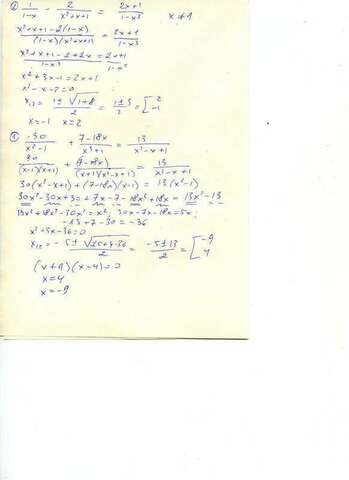 ② 1/(1-x) - 2/(x²+x+1) = (2x+1)/(1-x³)   x ≠ 1
(x²+x+1-2(1-x))/((1-x)(x²+x+1)) = (2x+1)/(1-x³)
(x²+x+1-2+2x)/(1-x³) = (2x+1)/(1-x³)
x²+3x-1=2x+1
x²-x-2=0
x₁₂ = (1±√(1+8))/2 = (1±3)/2 = [ 2 -1
x=-1   x=2
① 30/(x²-1) + (7-18x)/(x³+1) = 13/(x²-x+1)
30/((x-1)(x+1)) + (7-18x)/((x+1)(x²-x+1)) = 13/(x²-x+1)
30(x²-x+1)+(7-18x)(x-1) = 13(x²-1)
30x²-30x+30+7x-7-18x²+18x=13x²-13
13x²+18x²-30x²=x²; 30x-7x-18x=5x;
-13+7-30=-36
x²+5x-36=0
x₁₂ = (-5±√(25+4·36))/2 = (-5±13)/2 = [ -9 4
(x+9)(x-4)=0
x=4
x=-9